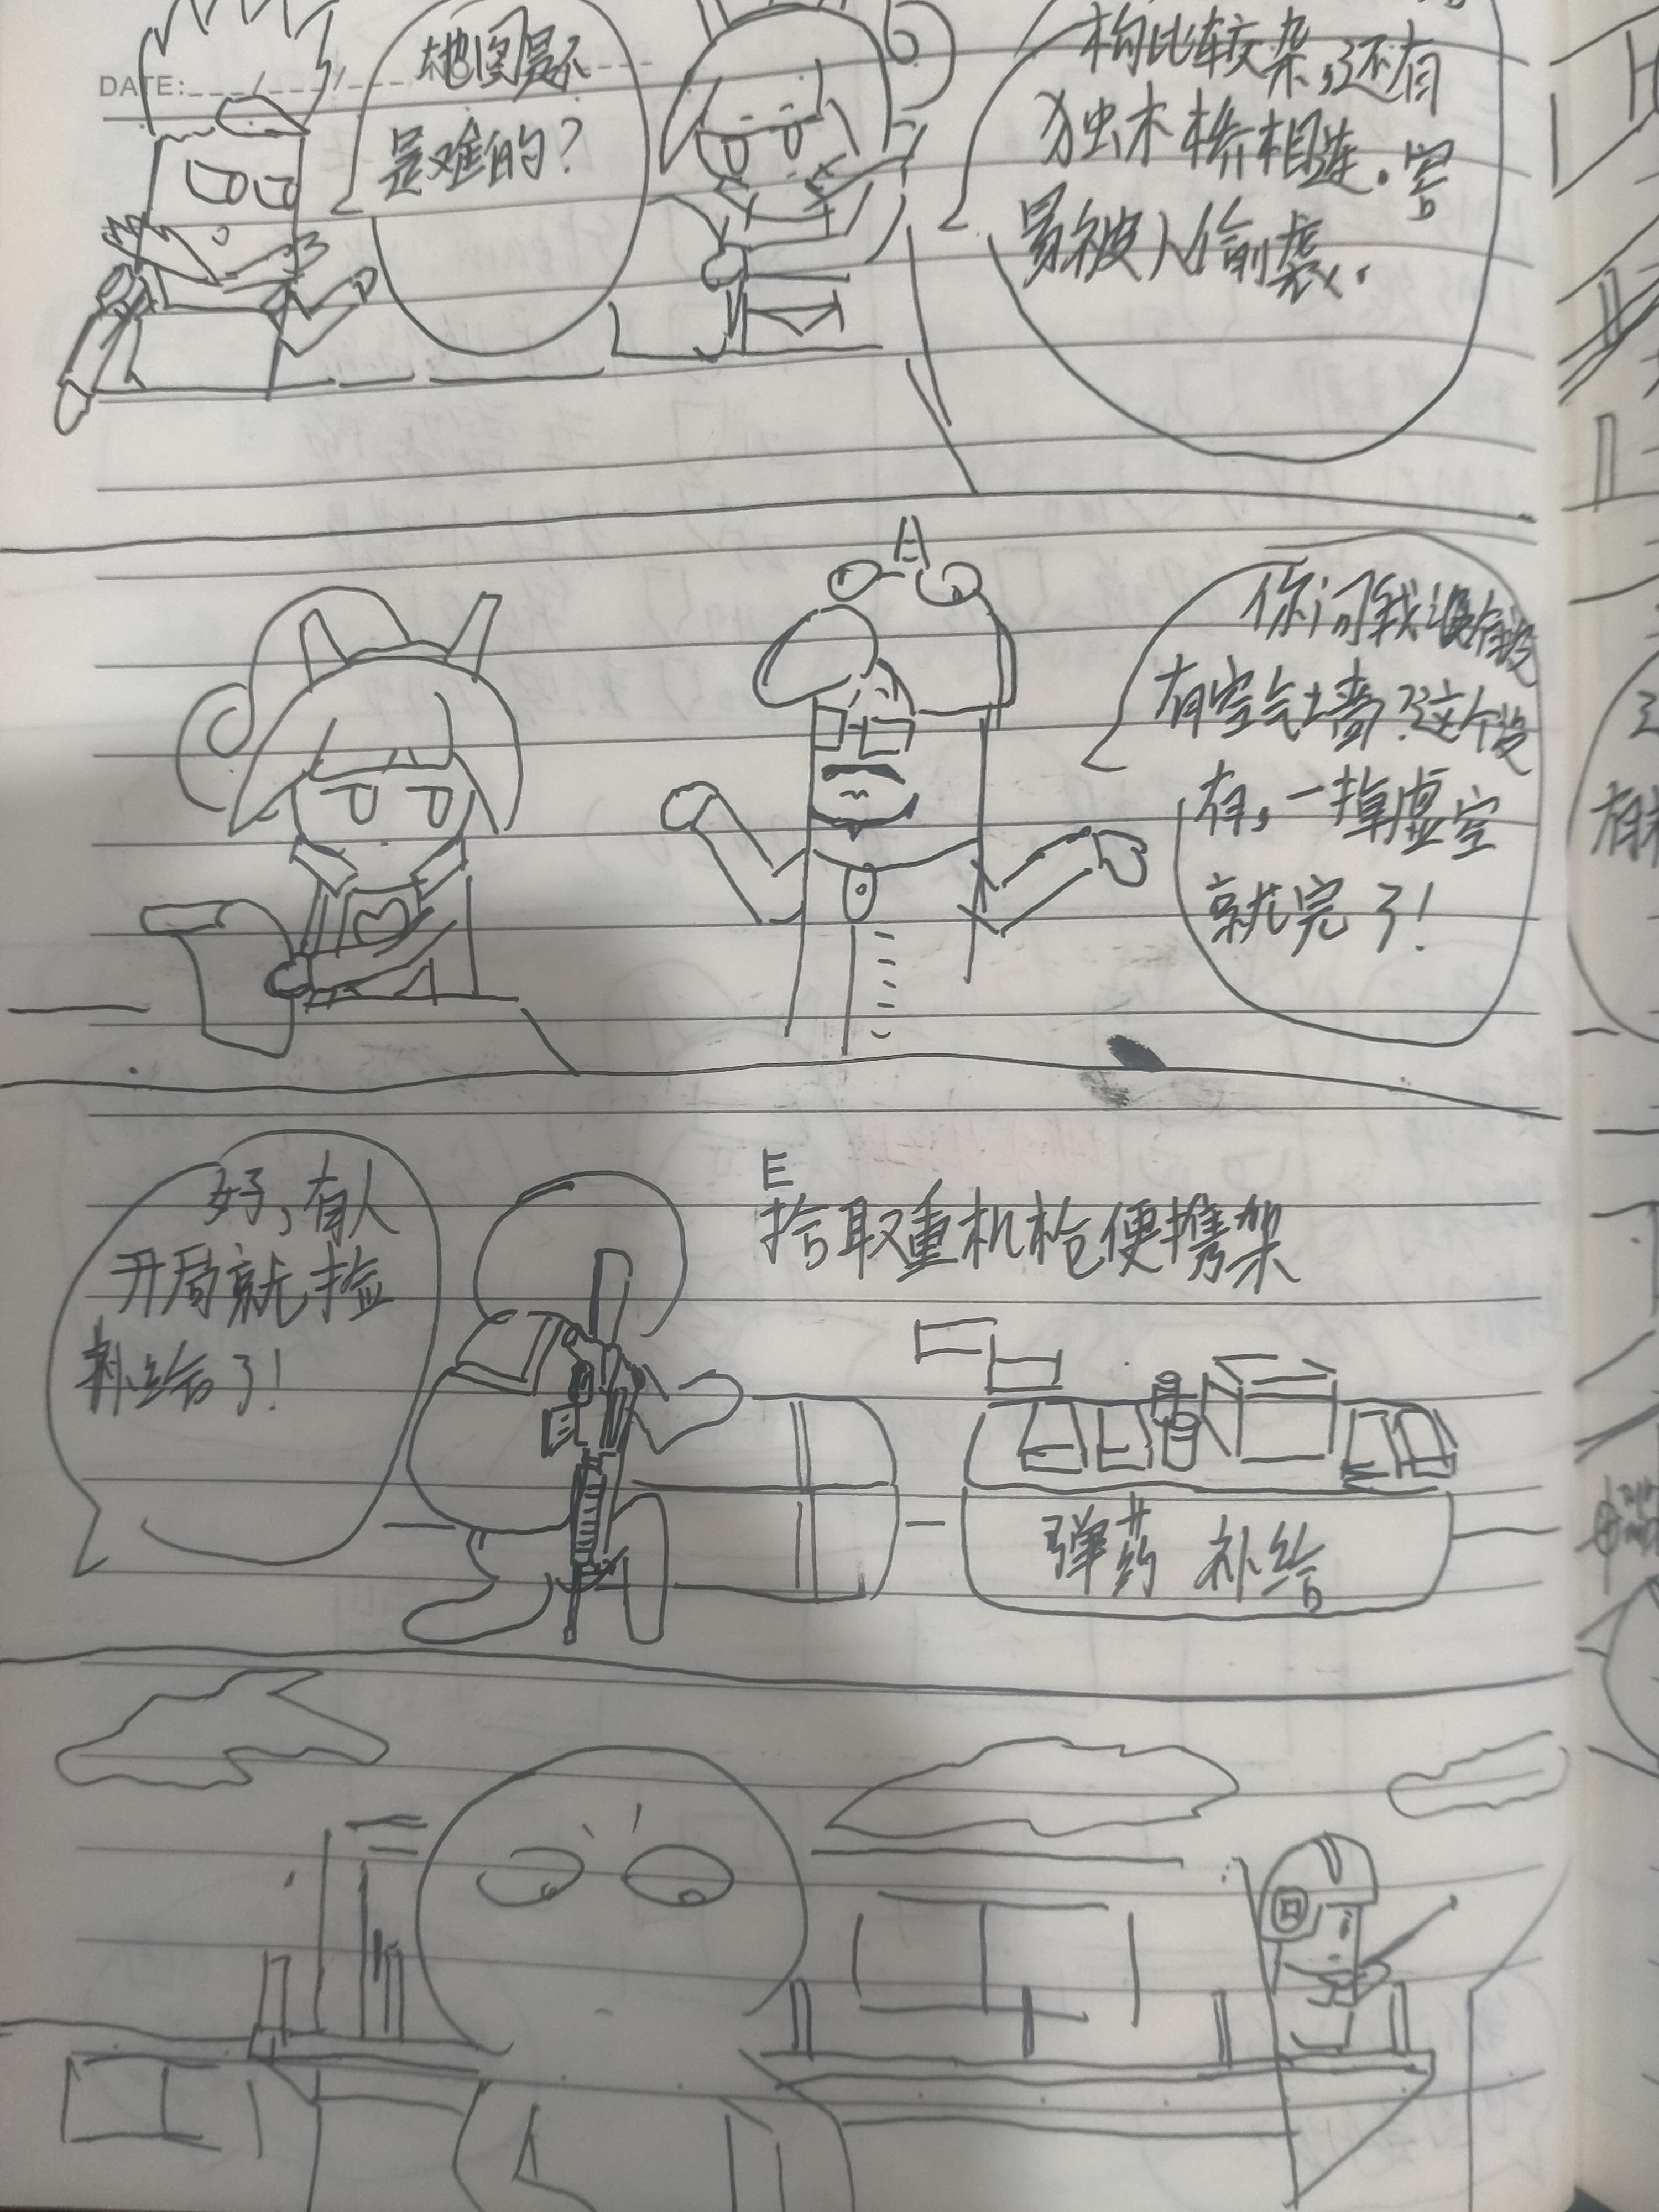 DATE:
地图是不
是难的？
构比较杂，还有
独木桥相连。容
易被人偷袭.
你问我
有空气墙？这个没
有，一掉虚空
就完了！
好，有人
开局就捡
补给了！
E
拾取重机枪便携架
弹药 补给